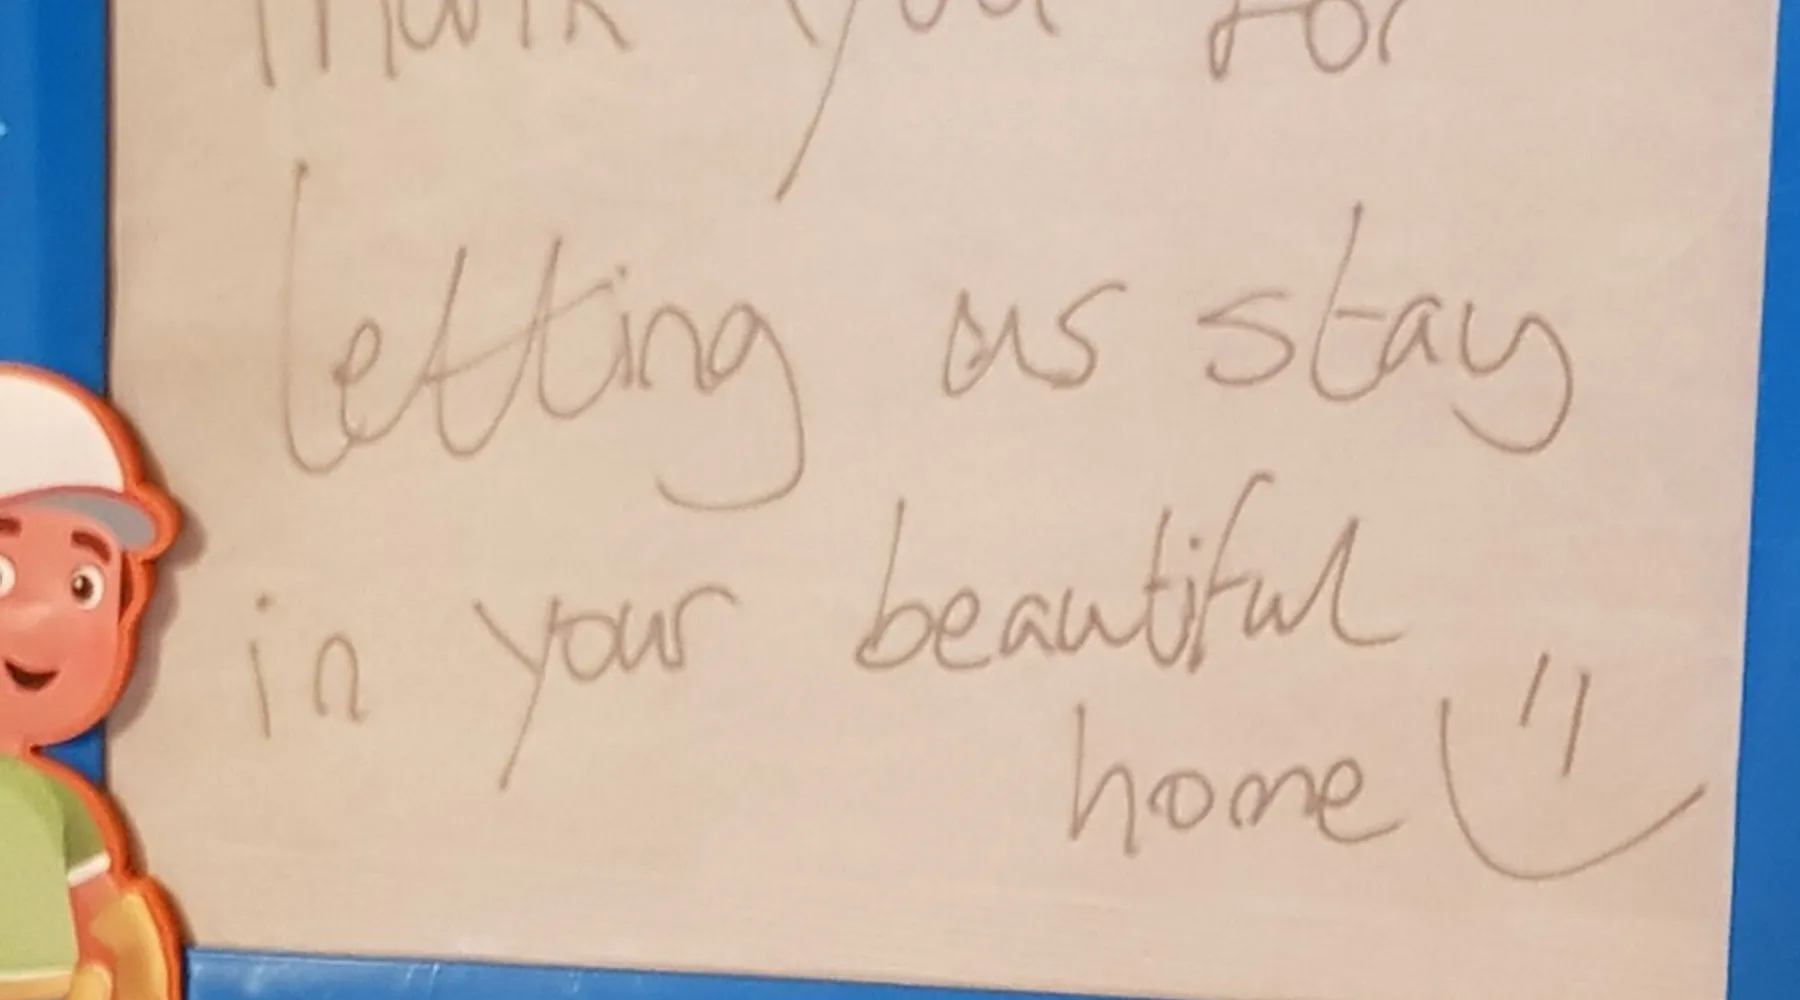 Thank you for
letting us stay
in your beautiful
home